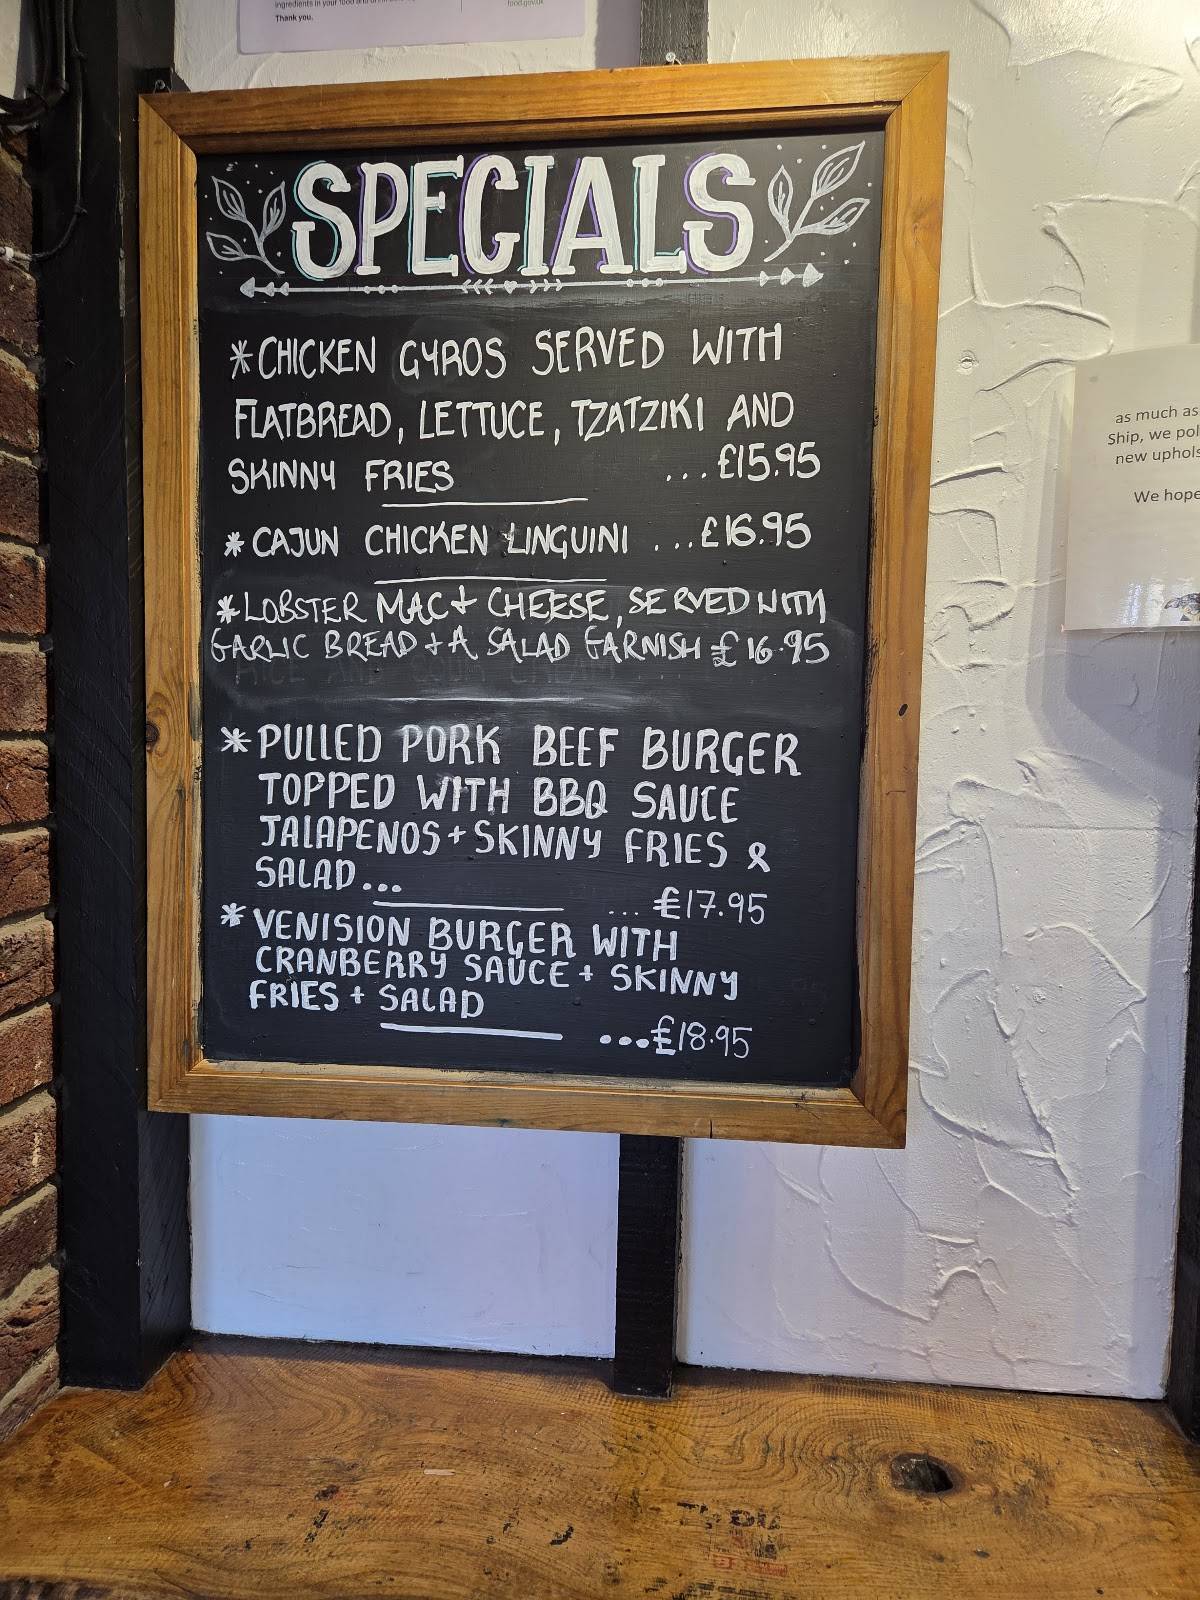 ingredients in your food and
Thank you.
food.gov.uk
SPECIALS
*CHICKEN GYROS SERVED WITH
FLATBREAD, LETTUCE, TZATZIKI AND
SKINNY FRIES ...£15.95
*CAJUN CHICKEN LINGUINI ...£16.95
*LOBSTER MAC + CHEESE, SERVED WITH
GARLIC BREAD + A SALAD GARNISH £16.95
RICE AND SOUR CREAM ...
*PULLED PORK BEEF BURGER
TOPPED WITH BBQ SAUCE
JALAPENOS + SKINNY FRIES &
SALAD...
... £17.95
*VENISION BURGER WITH
CRANBERRY SAUCE + SKINNY
FRIES + SALAD
...£18.95
as much as
Ship, we pol
new uphols
We hope